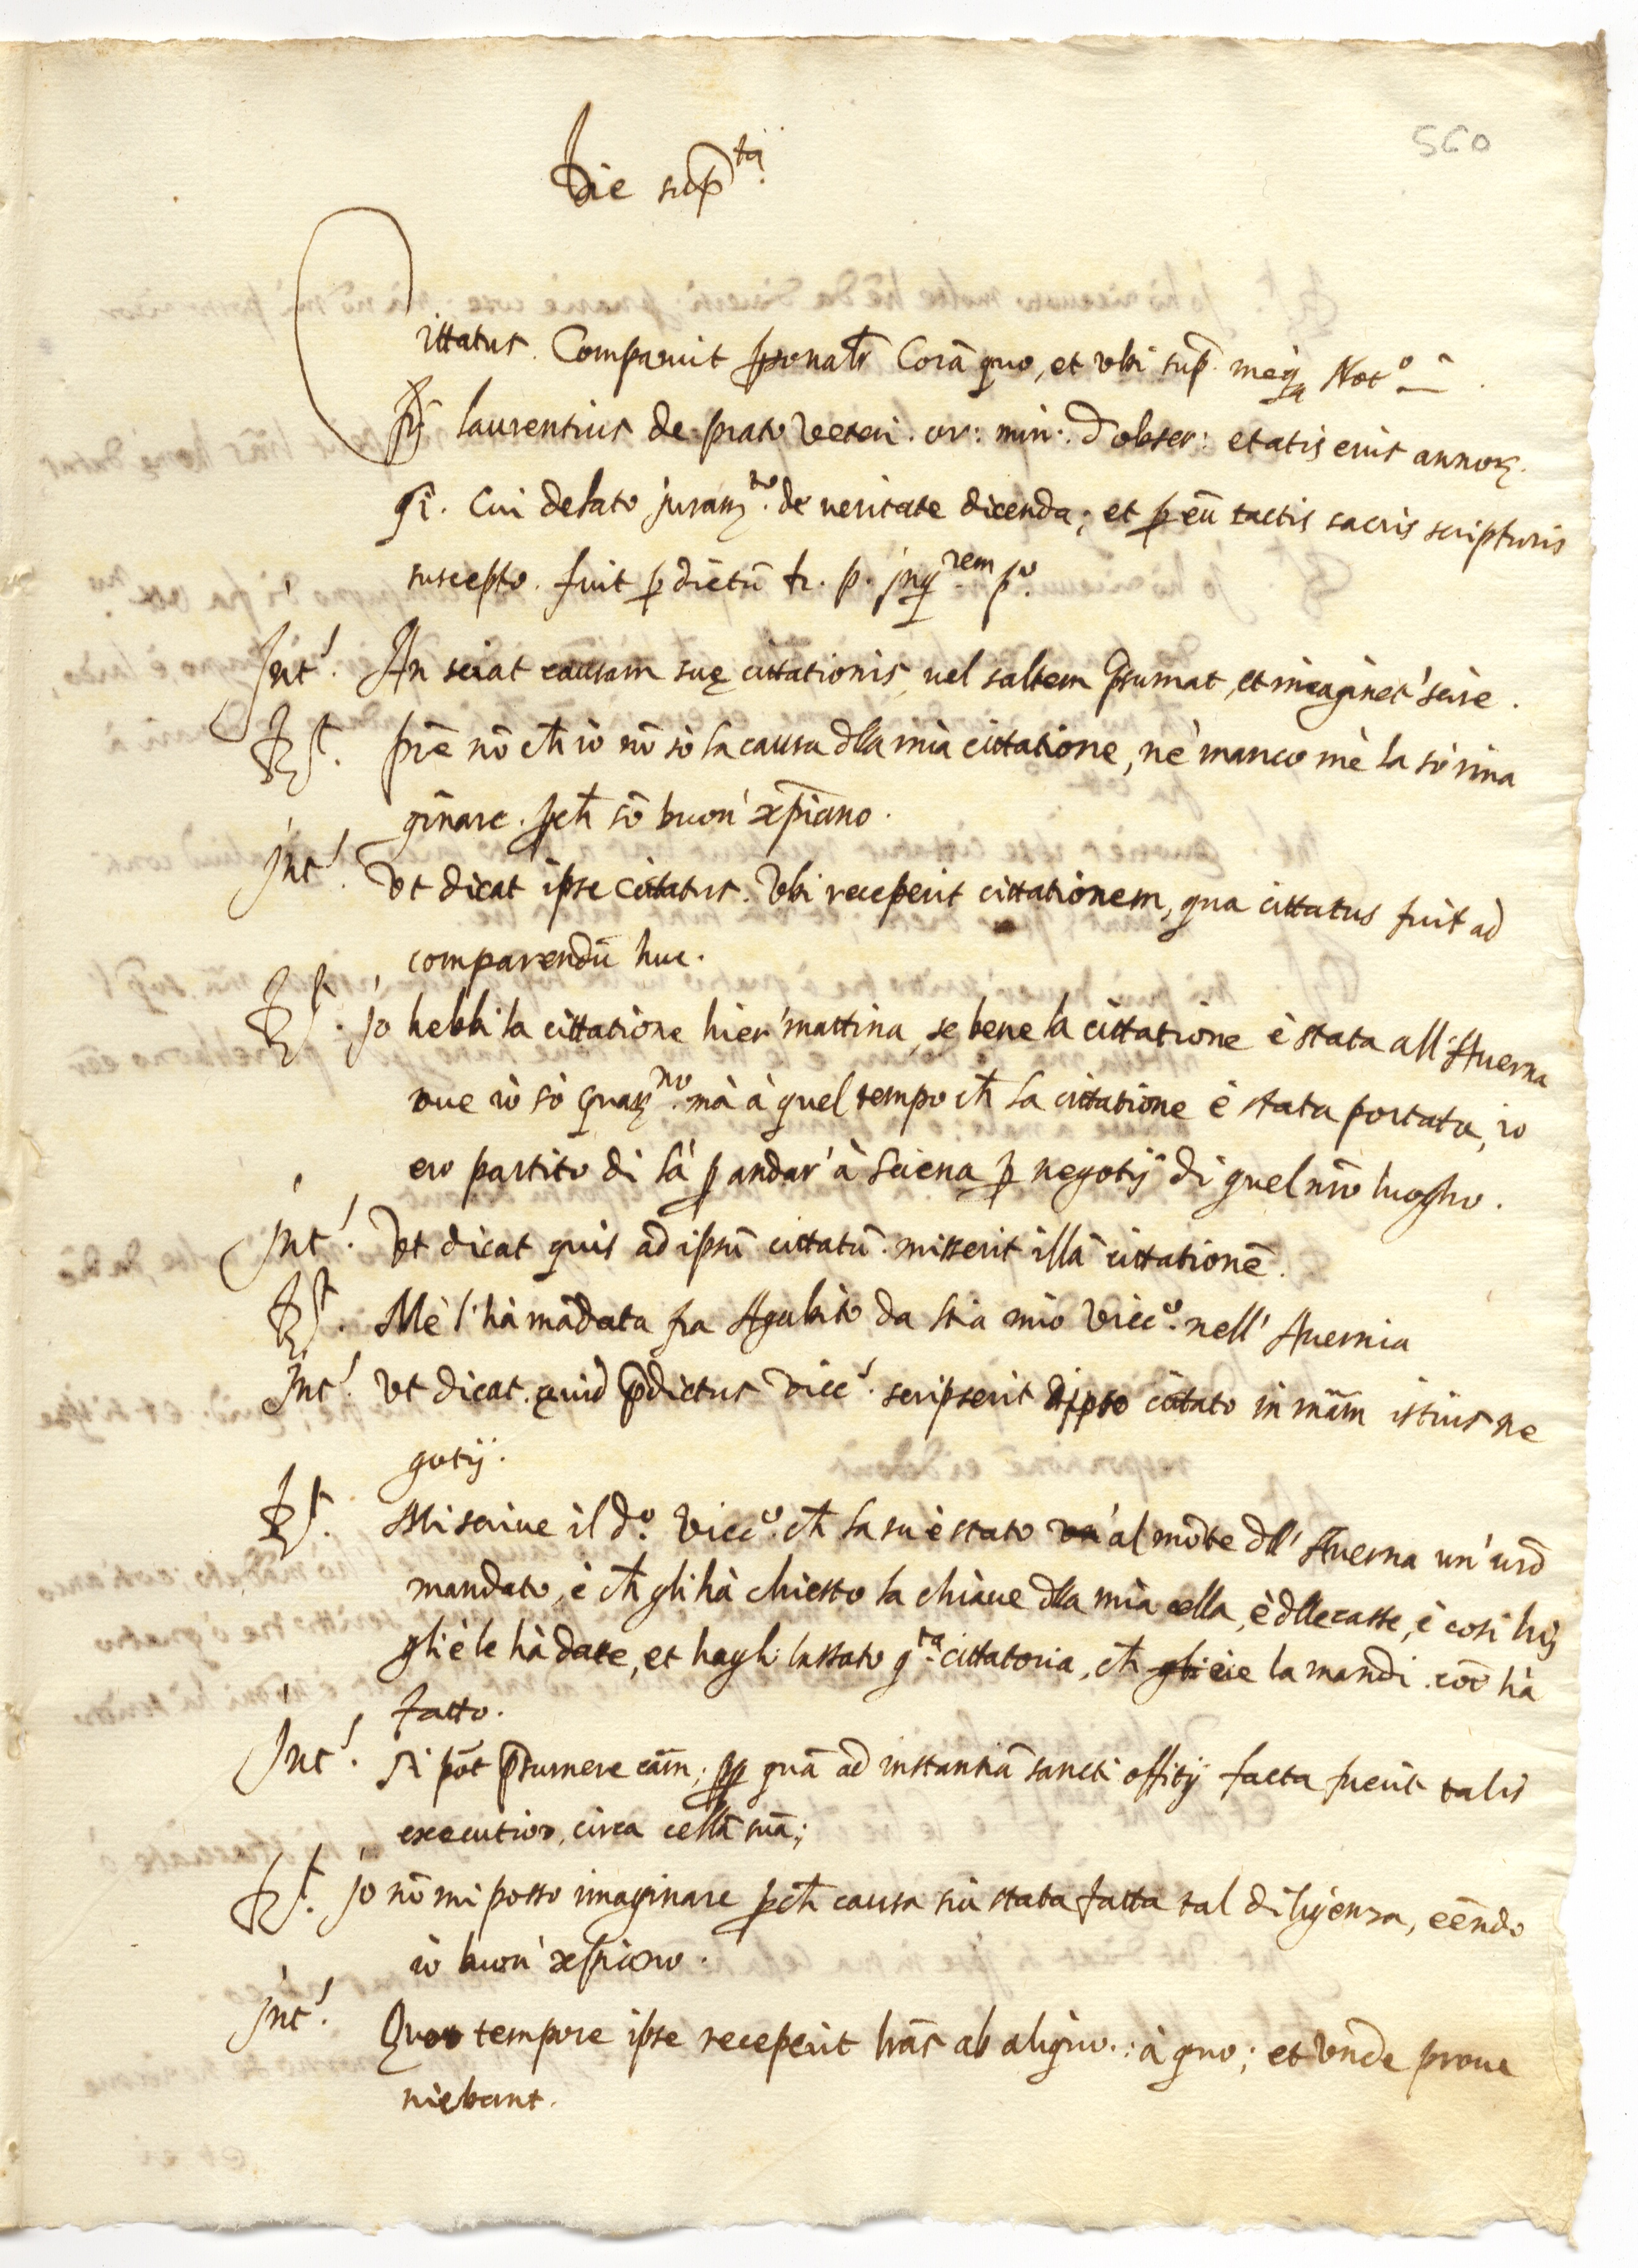 560
Die sup^ta.
Cittatus. Comparuit psonalr Corā quo, et vbi sup. meq Not^o
fr laurentius de prato veteri. or: min: d obser: etatis eius annoꝝ.
51. Cui delato juram^to. de veritate dicenda; et ꝑ eū tactis sacris scripturis
suscepto. fuit ꝑ dictū fr. p. inq^rem p^o.
Int^s. An sciat causam suę cittationis, uel saltem psumat, et imaginet' scire.
R^t. prē nō ch̄ io nō sò la causa dlla mia cittatione, ne' manco me la sò ima
ginare. pch̄ sō buon' xpiano.
Int^s. Vt dicat ipse Cittatus. Vbi receperit cittationem, qua cittatus fuit ad
comparendū huc.
R^t. Jo hebbi la cittatione hier' mattina, se bene la cittatione è stata all' Auerna
oue io sò Guar^no. mà à quel tempo ch̄ la cittatione è stata portata, io
ero partito di là ꝑ andar' à Sciena ꝑ negotij di quel nrō luogho.
Int^s. Vt dicat quis ad ipsū cittatū. misserit illā cittationē.
R^t. Me l' hà mādata fra Agabito da stia mio Vicc^o. nell' Auernia
Int^s. Vt dicat. quid pdictus Vicc^s. scripserit ipso cittato in mām istius ne
gotij.
R^t. Mi scriue il d^o. Vicc^o. ch̄ la su è stato un' al mōte dll' Auerna un' urō
mandato, è ch̄ gli hà chiesto la chiaue dlla mia cella, è dlle casse, è cosi lui
gli è le hà date, et hagli lassato q^ta cittatoria, ch̄ gli eie la mandi. coō hà
fatto.
Int^s. Si pōt psumere cām, pp quā ad instantiā sancti offitij facta fuerit talis
executio, circa cellā suā;
R^t. Jo nō mi posso imaginare pch̄ causa sia stata fatta tal diligenza, eēndo
io buon' xpiano.
Int^s. Quo tempore ipse receperit lrās ab aliquo.: à quo; et vnde proue
niebant.